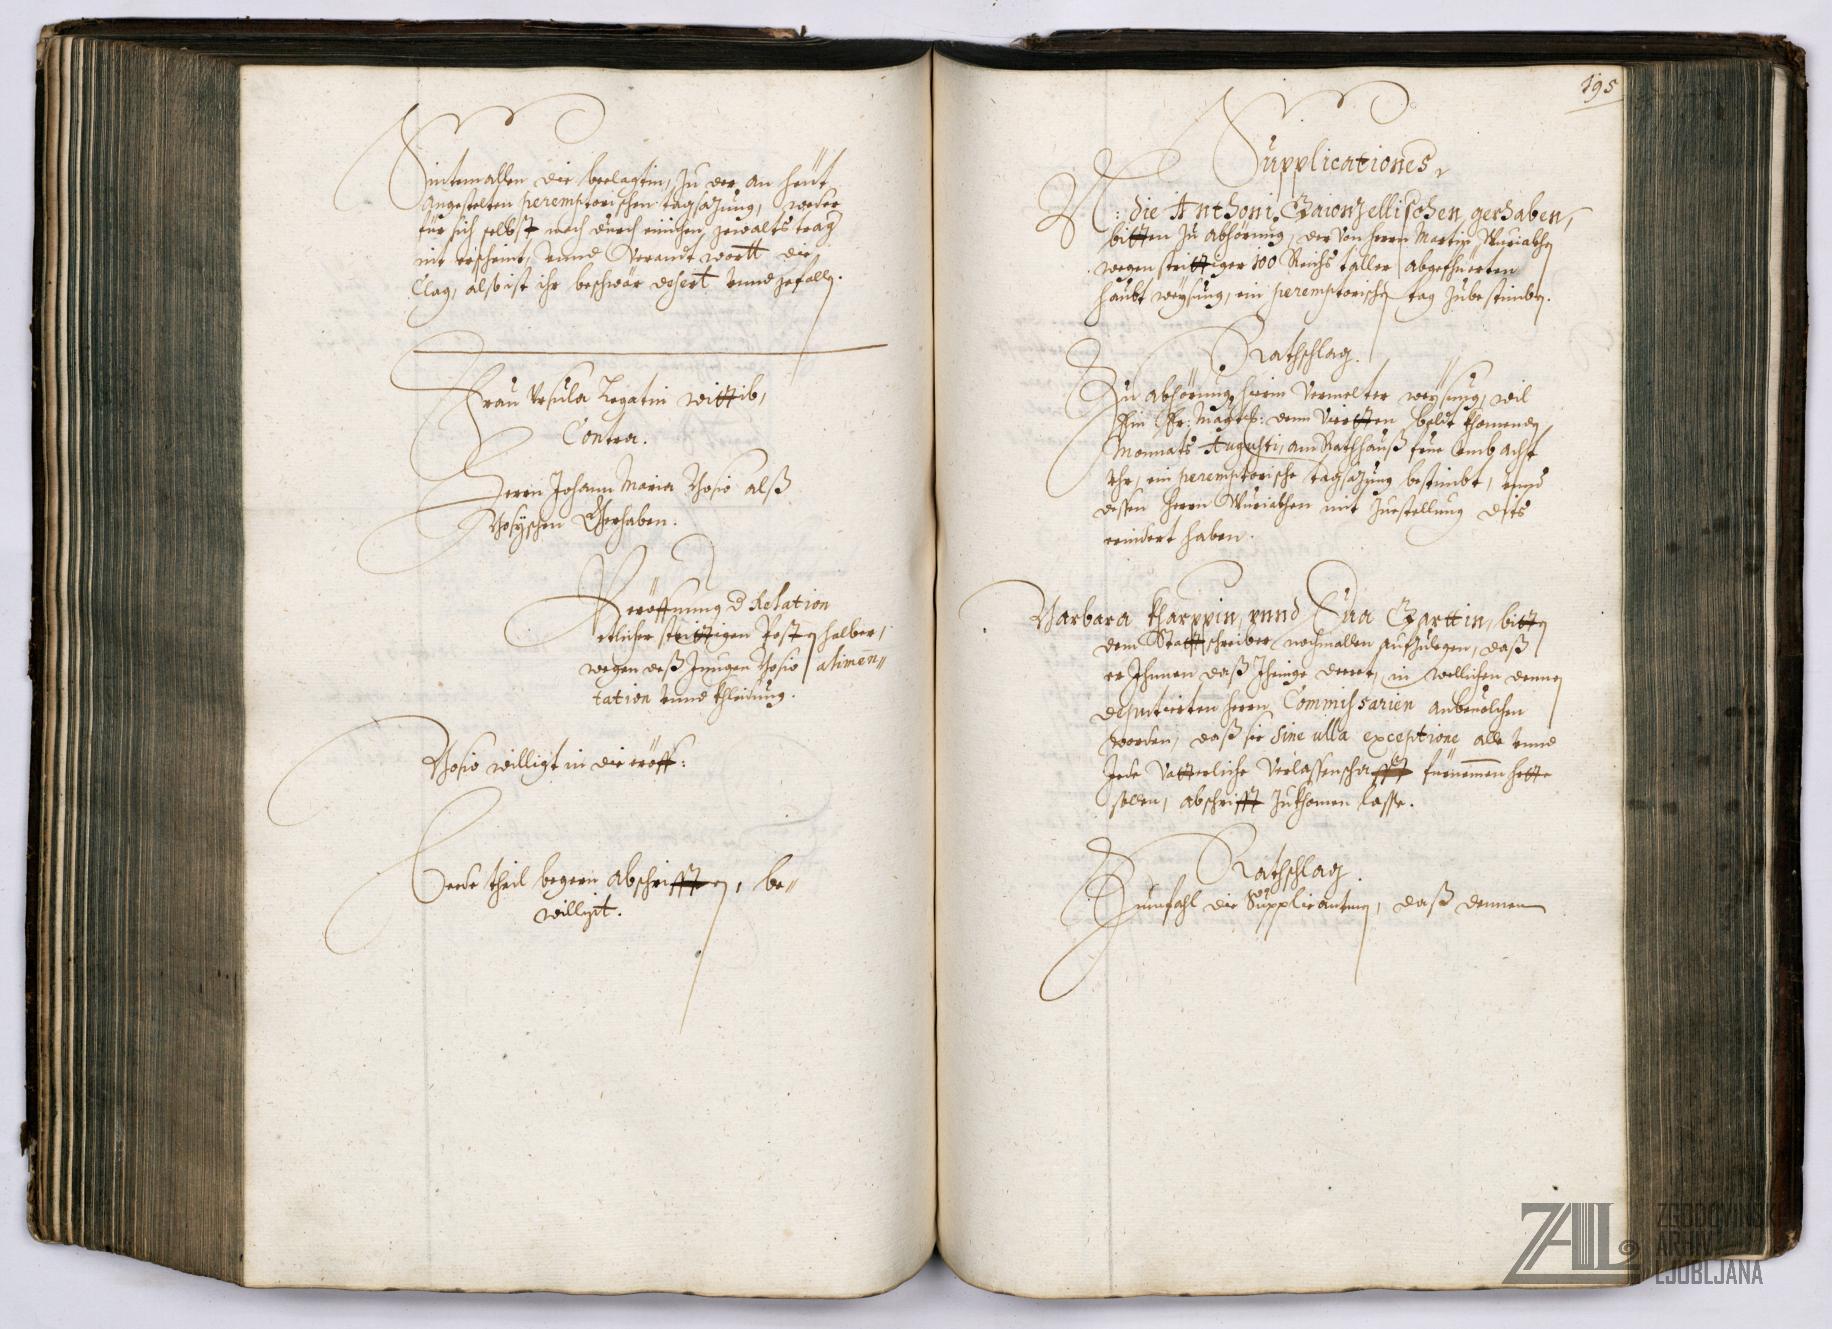 Sintemallen die beclagtin, zu der an heüt
angestelten peremptorischen tagsazung, weder
für sich selbst noch durch einichen gewaltstrag
nit erscheint, vnnd verandtwortt die
Clag, alß ist ihr beschwär desert vnnd gefalln.
Frau Vrsula Legatin wittib,
Contra.
Herrn Johann Maria Bosio alß
Bosyschen Gerhaben.
Eröffnung d Relation
etlicher strittigen Posten halber,
wegen deß Jungen Bosio alimen"
tation vnnd khleidung.
Bosio willigt in die eröff:
Beede theil begern abschrifften, be"
willigt.
195
Supplicationes,
N: die Anthoni Gaionzellischen gerhaben,
bitten zu abhörung, der von herrn Martin
wegen strittiger 100 Reichs taller abgefhüerten
haubt weysung, ein peremptorischen tag zubestimben.
Rathschlag.
Zu abhörung hierin vermelter weysung, wil
Ein Er: Magist: denn vierten bald khomenden
Monnats Augusti, am Rathhauß frue vmb acht
Vhr, ein peremptorische tagsazung bestimbt, vnnd
dessen herrn mit zuestellung dits
erindert haben.
Barbara Kharppin, vnnd Eua Garttin, bitten
dem Stattschreiber nochmallen aufzulegen, daß
er Ihnen daß Ihenige decret, in wellichen dennen
deputierten herrn Commissarien anbeuolchen
worden, daß sie sine ulla exceptione alle vnnd
Jede Vatterliche Verlassenschafft fürnemmen hette
sollen, abschrifft zukhomen lasse.
Rathschlag.
Zumfahl die Supplicantinen, daß dennen
ZAL
ZGODOVINSKI
ARHIV
LJUBLJANA